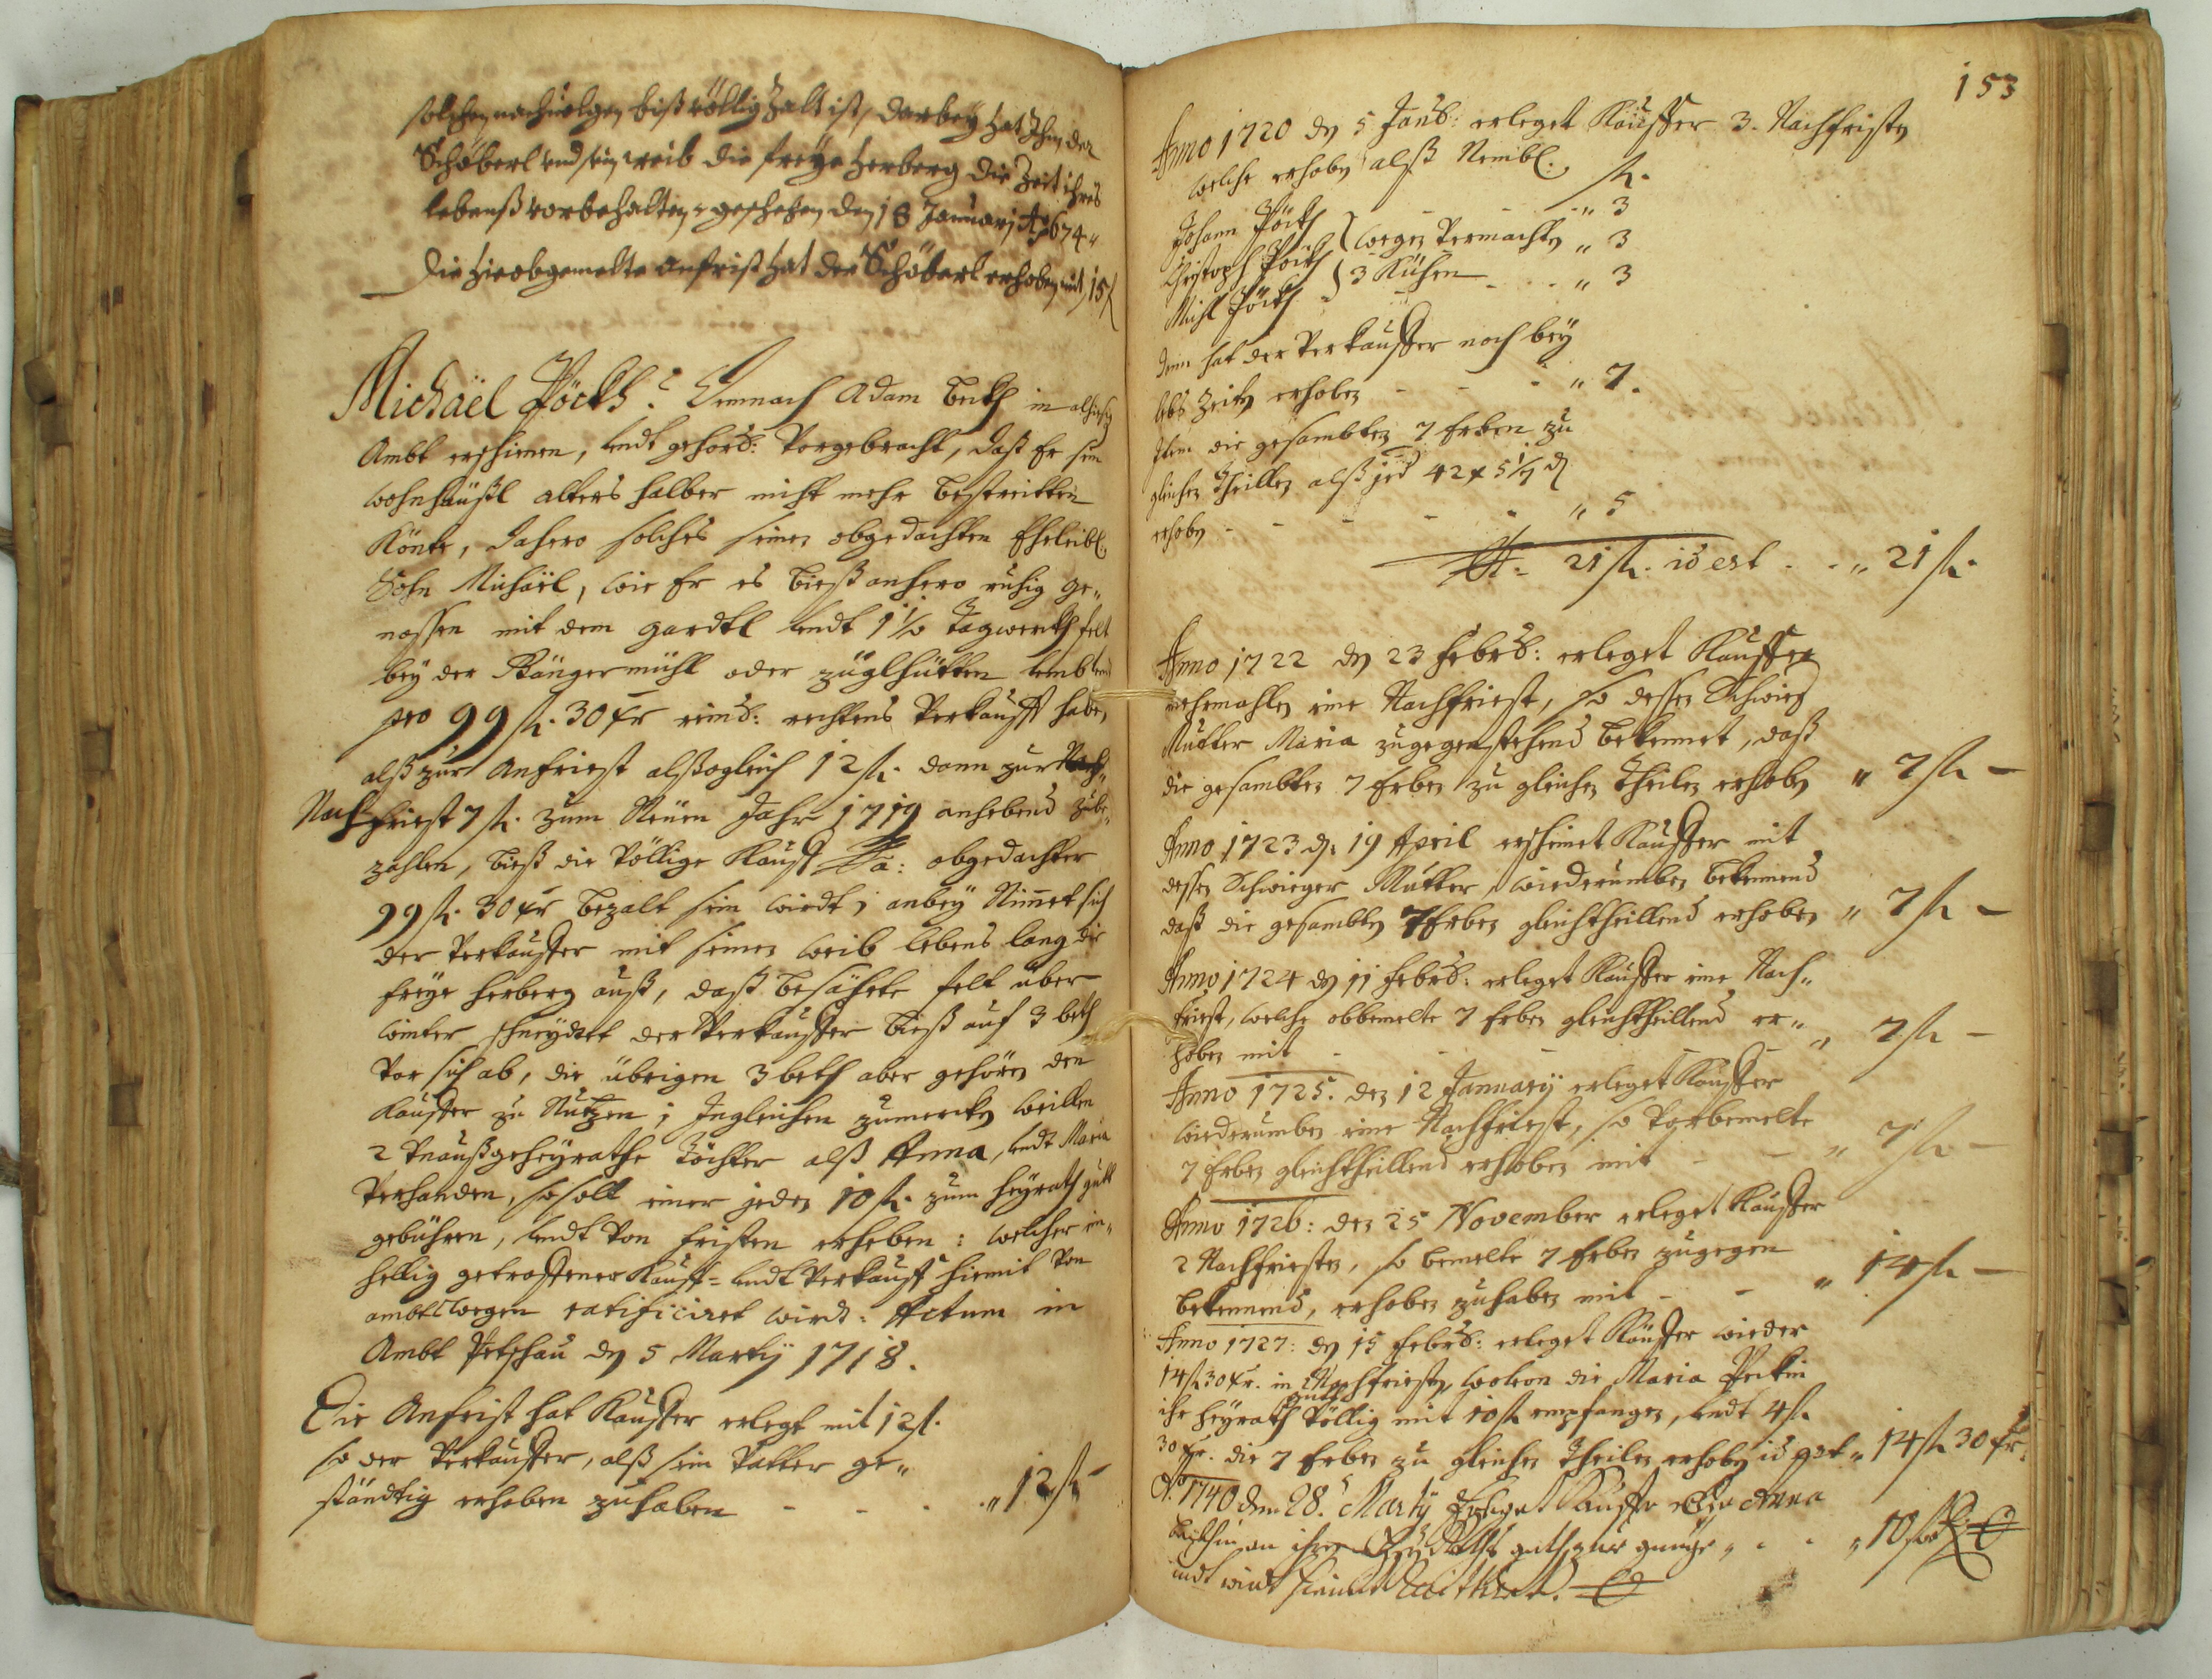 solchen nachvolgen biß völlig Zalt ist, darbey hat Ihm der
Schöberl und sein weib die freye Herberg die Zeit ihres
lebenß vorbehalten, geschehen den 18 Januarj Ao 674
Die hieobgemelte anfrist hat der Schöberl erhoben mit 15 fl
Michäel Pöckh: Demnach Adam Beckh in
Ambt erschienen, undt gehors: Vorgebracht, daß Er sein
wohnhäußl alters halber nicht mehr bestreitten
Könte, dahero solches seinen obgedachten Eheleibl:
Sohn Michäel, wie Er es bieß anhero ruhig ge„
nossen mit dem gardtl undt 1 1/2 Tagwerckh felt
bey der mühl oder züglhütten
pro 99 fl. 30 xr rechtens Verkaufft habe,
alß zur Anfriest alßogleich 12 fl. dann zur
Nachfriest 7 fl. zum Neüen Jahr 1719 anhebend zube„
zahlen, bieß die Völlige Kauff Sa: obgedachter
99 fl. 30 xr bezalt sein wirdt; anbey Nimet sich
der Verkauffer mit seinen weib lebens lang die
freye herberg auß, daß besähete felt über
winter schneydtet der Verkauffer bieß auf 3 beth
Vor sich ab, die übrigen 3 beth aber gehören den
Kauffer zu Nutzen; Ingleichen zumercken weillen
2 Vnaußgeheyrathe Töchter alß Anna, undt Maria
Verhanden, so soll einer jeden 10 fl. zum heyrath gutt
gebühren, undt Von fristen erheben: welcher ein„
hellig getroffener Kauff- undt Verkauff hiemit Von
ambtswegen ratificiret wird: Actum in
Ambt Petschau den 5 Martij 1718.
Die Anfrist hat Kauffer erlegt mit 12 fl.
so der Verkauffer, alß sein Vatter ge„
ständtig erhoben zuhaben - - - „ 12 fl -
153
Anno 1720 den 5 Janu: erleget Kauffer 3. Nachfristen
welche erhoben alß Nembl:
fl.
Johann Pöckh - - - „ 3
Christoph Pöckh } wegen Vermachten „ 3
Michl Pöckh } 3 Kühen - - „ 3
denn hat der Verkauffer noch bey
lebs Zeiten erhoben - - - „ 7.
Item die gesambten 7 Erben zu
gleichen Theillen alß jed 42 x 5 1/7 d
erhoben - - - - „ 5
St. 21 fl. id est - - „ 21 fl.
Anno 1722 den 23 febru: erleget Kauffer
mehrmahlen eine Nachfriest, so dessen Schwieg
Mutter Maria zugegenstehend bekennet, daß
die gesambten 7 Erben zu gleichen Theilen erhoben „ 7 fl -
Anno 1723 d. 19 April erscheinet Kauffer mit
dessen Schwieger Mutter, wiederumben bekennend
daß die gesambten 7 Erben gleichtheillend erhoben „ 7 fl -
Anno 1724 den 11 febru: erleget Kauffer eine Nach„
friest, welche obbemelte 7 Erben gleichtheillend er„
hoben mit - - - „ 7 fl -
Anno 1725. den 12 January erleget Kauffer
wiederumben eine Nachfriest, so Vorbemelte
7 Erben gleichtheillend erhoben mit - - „ 7 fl -
Anno 1726: den 25 November erleget Kauffer
2 Nachfriesten, so bemelte 7 Erben zugegen
bekennend, erhoben zuhaben mit - - „ 14 fl -
Anno 1727: den 15 febru: erleget Kauffer wieder
14 fl 30 xr. in Nachfriesten, wovon die Maria Peckin
ihr heyrath gutt Völlig mit 10 fl empfangen, undt 4 fl.
30 xr. die 7 Erben zu gleichen Theilen erhoben id est „ 14 fl 30 xr.
Ao. 1740 den 28. Martij Erleget Kauffer Anna
an ihren Heyraths guth zur gnüge „ - - „ 10 fl
undt wirdt hiemit